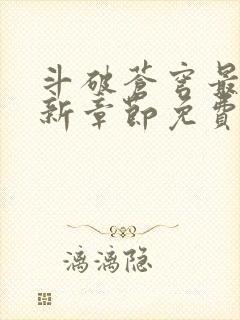 斗破苍穹最
新章节免费
漓漓隐